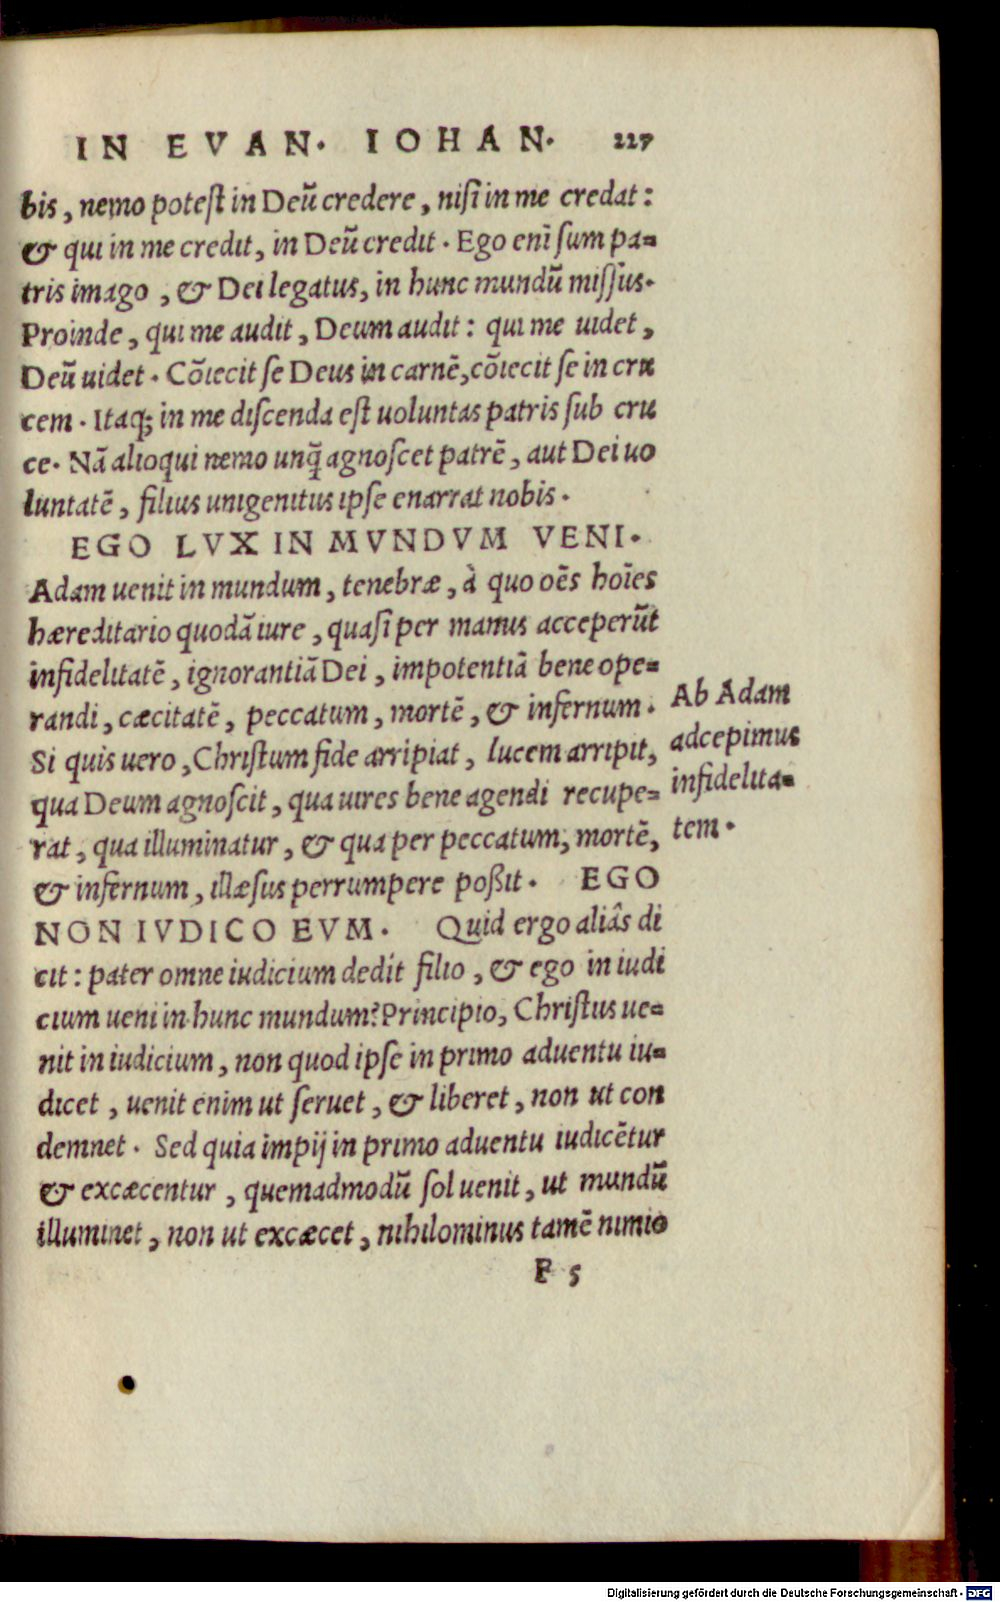 IN EVAN. IOHAN. 227
bis, nemo potest in Deũ credere, nisi in me credat:
& qui in me credit, in Deũ credit. Ego eni͂ sum pa-
tris imago, & Dei legatus, in hunc mundũ missus.
Proinde, qui me audit, Deum audit: qui me uidet,
Deũ uidet. Cõiecit se Deus in carnẽ, cõiecit se in cru
cem. Itaq; in me discenda est uoluntas patris sub cru
ce. Nã alioqui nemo unq̃ agnoscet patrẽ, aut Dei uo
luntatẽ, filius unigenitus ipse enarrat nobis.
EGO LVX IN MVNDVM VENI.
Adam uenit in mundum, tenebræ, à quo oẽs hoĩes
hæreditario quodã iure, quasi per manus acceperũt
infidelitatẽ, ignorantiã Dei, impotentiã bene ope-
randi, cæcitatẽ, peccatum, mortẽ, & infernum.
Si quis uero, Christum fide arripiat, lucem arripit,
qua Deum agnoscit, qua uires bene agendi recupe-
rat, qua illuminatur, & qua per peccatum, mortẽ,
& infernum, illæsus perrumpere poßit. EGO
NON IVDICO EVM. Quid ergo aliâs di
cit: pater omne iudicium dedit filio, & ego in iudi
cium ueni in hunc mundum? Principio, Christus ue-
nit in iudicium, non quod ipse in primo aduentu iu-
dicet, uenit enim ut seruet, & liberet, non ut con
demnet. Sed quia impij in primo aduentu iudicẽtur
& excæcentur, quemadmodũ sol uenit, ut mundũ
illuminet, non ut excæcet, nihilominus tamẽ nimio
F 5
Ab Adam
adcepimus
infidelita-
tem.
Digitalisierung gefördert durch die Deutsche Forschungsgemeinschaft - DFG